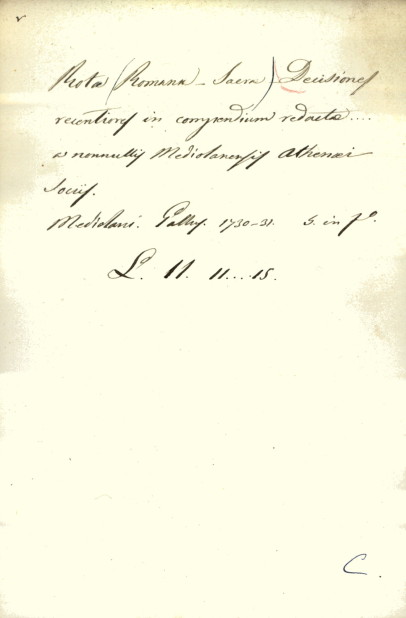 Rotæ (Romanæ - Sacræ) Decisiones
recentiores in compendium redactæ....
a nonnullis Mediolanensis Athenæi
Sociis.
Mediolani. 1730-31. 5. in fº.
L. 11. 11...15.
C.